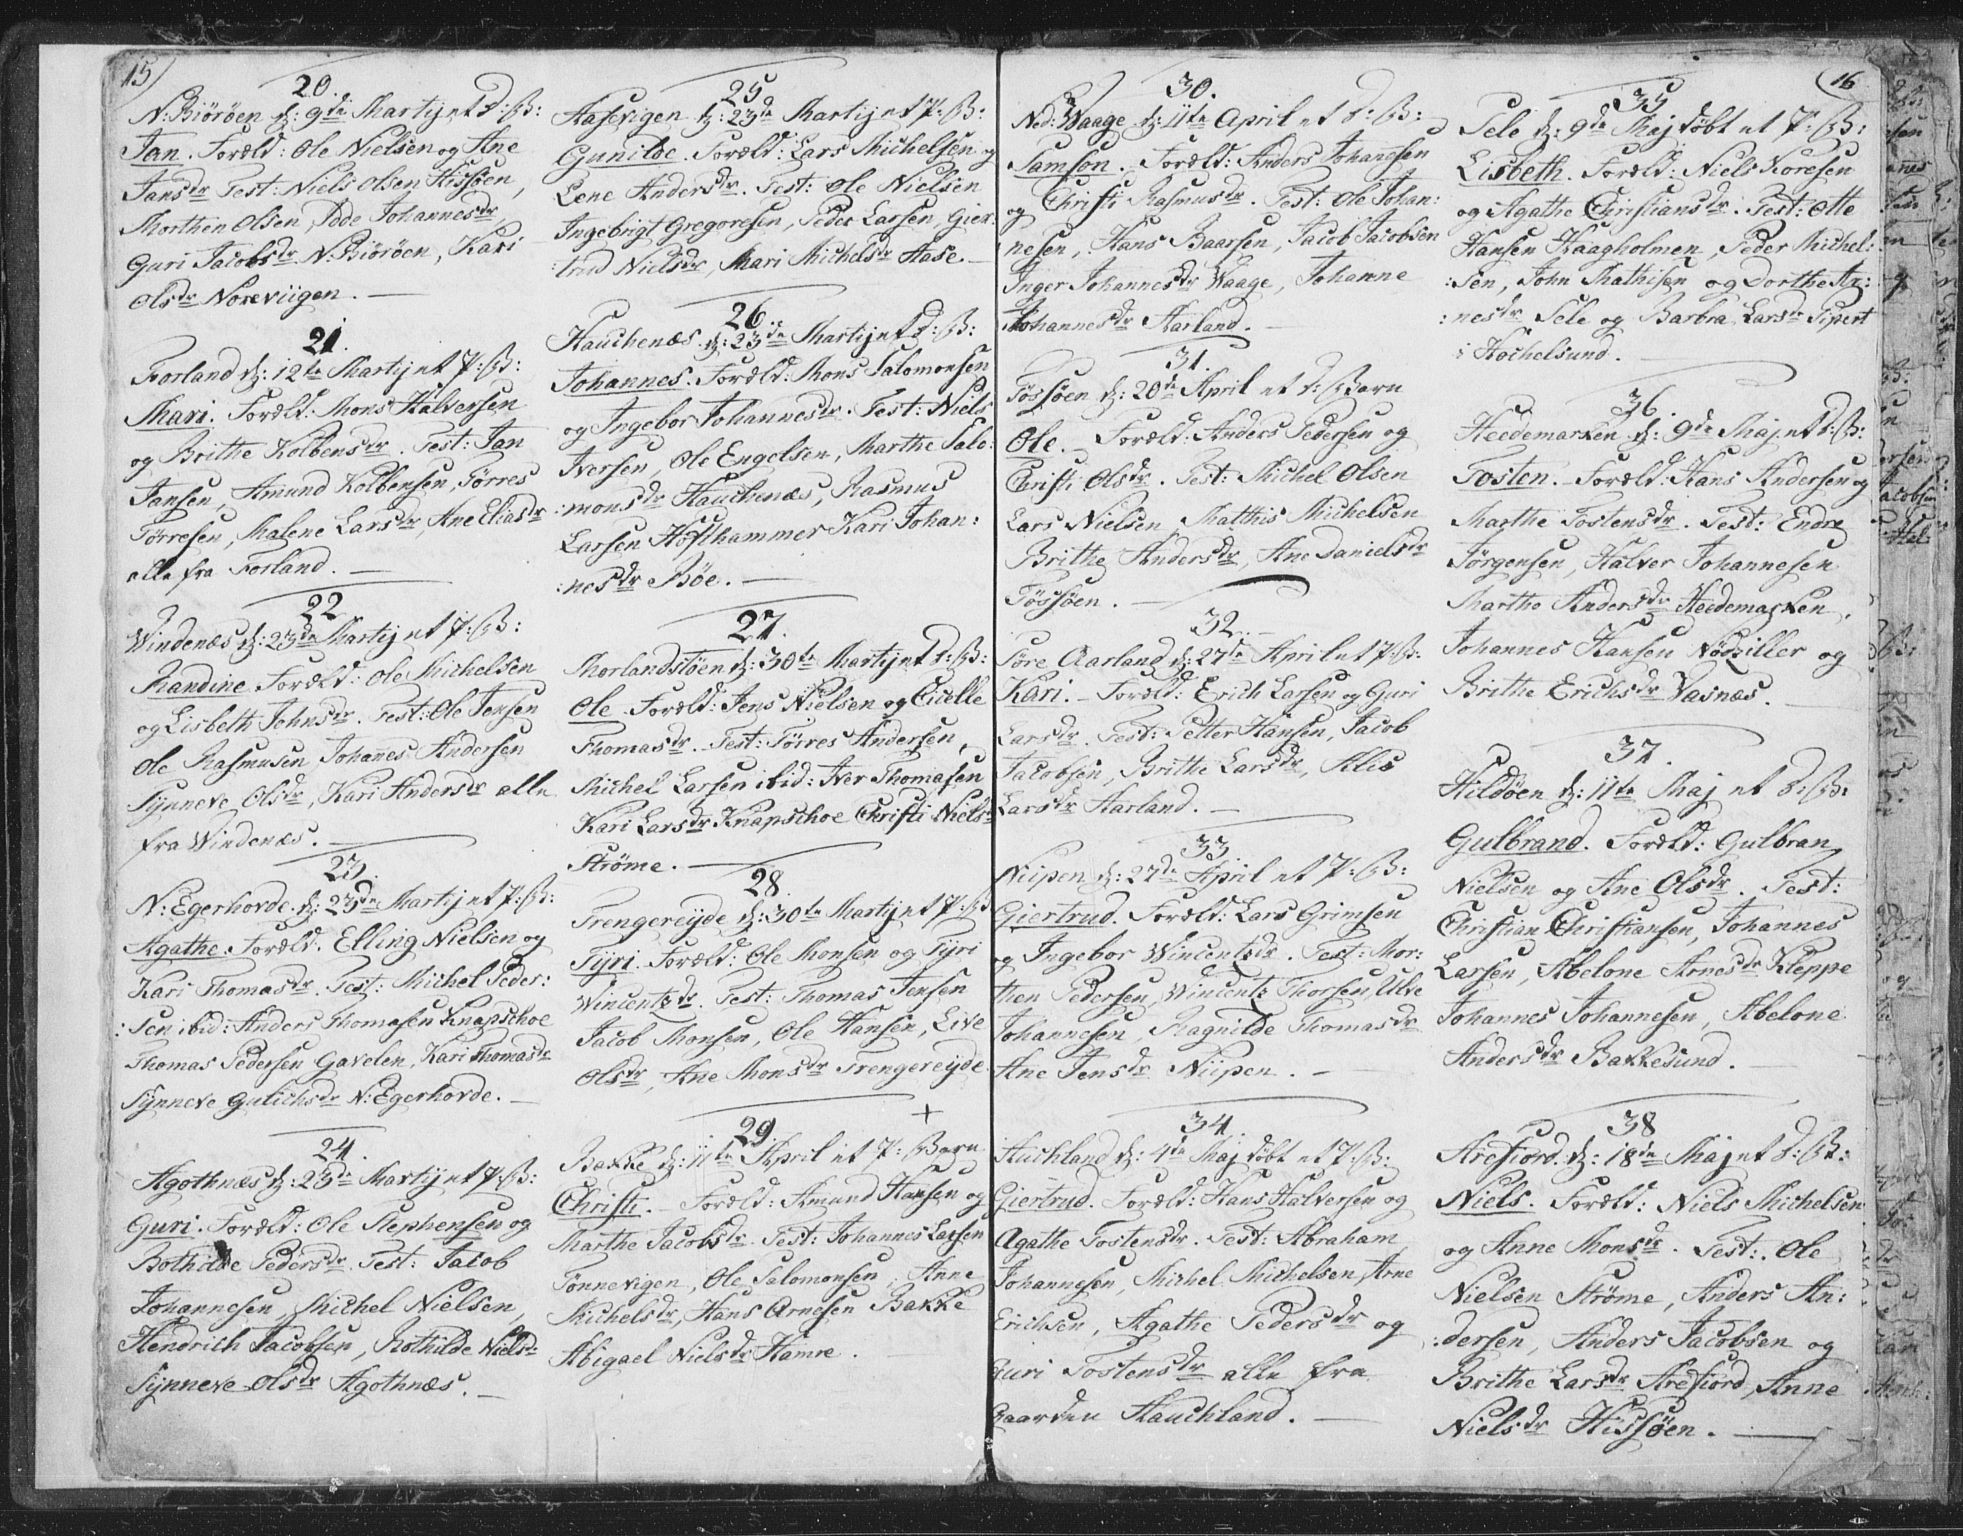 15)
20.
N: Biöröen d: 9de Martij et D: B:
Jan. Foræld: Ole Nielsen og Ane
Jansdr Test: Niels Olsen Hissøen,
Morthen Olsen, Ode Johannesdr,
Guri Jacobsdr N. Biöröen, Kari
Olsdr Noreviigen. —
21.
Forland d: 12te Martij et P: B:
Mari. Foræld: Mons Halversen
og Brithe Kolbensdr. Test: Jan
Jansen, Amund Kolbensen, Törres
Törresen, Malene Larsdr, Ane Eliasdr
alle fra Forland. —
22
Windenæs d: 23de Martij et P: B:
Randine Foræld: Ole Michelsen
og Lisbeth Johnsdr. Test: Ole Jensen
Ole Rasmusen Johannes Andersen
Synneve Olsdr, Kari Andersdr alle
fra Windenæs. —
23.
N: Egerhovde d: 23de Martij et P: B:
Agathe. Foræld. Elling Nielsen og
Kari Thomasdr. Test: Michel Peder:
:sen ibid: Anders Thomasen Knapschoe
Thomas Pedersen Gavelen, Kari Thomasdr
Synneve Gulichsdr N: Egerhovde. —
24.
Agothnæs d: 23de Martij et P: B:
Guri. Foræld: Ole Stephensen og
Bothilde Pedersdr Test: Jacob
Johannesen, Michel Nielsen,
Hendrich Jacobsen, Bothilde Nielsdr
Synneve Olsdr Agothnæs. —
25
Hasevigen d: 23de Martij et P: B:
Gunilde. Foræld: Lars Michelsen og
Lene Andersdr. Test: Ole Nielsen
Ingebrigt Gregoresen, Peder Larsen, Gier
:trud Nielsdr, Mari Michelsdr Hase. —
26.
Hauchenæs d: 23de Martij et D: B:
Johannes. Foræld: Mons Salomonsen
og Ingebor Johannesdr. Test: Niels
Iversen, Ole Engelsen, Marthe Salo:
:monsdr Hauchenæs, Rasmus
Larsen Hofthammer Kari Johan:
:nesdr Böe. —
27.
Morlandstöen d: 30te Martij et D: B:
Ole. Foræld: Jens Nielsen og Cicelle
Thomasdr. Test: Töires Andersen,
Michel Larsen ibid: Iver Thomasen
Kari Larsdr Knapschoe Christi Nielsdr
Ströme. —
28.
Trengereijde d: 30te Martij et P: B
Tyri. Foræld: Ole Monsen og Tyri
Wincentzdr. Test: Thomas Jensen
Jacob Monsen, Ole Hansen, Live
Olsdr, Ane Monsdr Trengereijde
29. +
Bakke d: 11te April et P: Barn
Christi. — Foræld: Amund Hansen og
Marthe Jacobsdr. Test: Johannes Larsen
Tönnevigen, Ole Salomonsen, Anne
Michelsdr, Hans Arnesen Bakke
Abigael Nielsdr Hamre. —
30.
Ned: Waage d: 11te April et D: B:
Samson. Foræld: Anders Johannsen
og Christi Rasmusdr. Test: Ole Johan:
:nesen, Hans Baarsen, Jacob Jacobsen
Inger Johannesdr Waage, Johanne
Johannesdr Aarland. —
31.
Tössöen d: 20de April et D: Barn
Ole. — Foræld: Anders Pedersen og
Christi Olsdr. Test: Michel Olsen
Lars Nielsen, Matthis Michelsen
Brithe Andersdr, Ane Danielsdr
Tössöen. —
32. —
Töre Aarland d: 27de April et P: B:
Kari. — Foræld: Erich Larsen og Guri
Larsdr. Test: Petter Hansen, Jacob
Jacobsen, Brithe Larsdr, Alis
Larsdr Aarland. —
33
Niipen d: 27de April et P: B:
Giertrud. Foræld: Lars Grimsen
og Ingebor Wincentzdr. Test: Mor:
then Pedersen, Wincentz Thorsen, Ulve
Johannesen, Ragnilde Thomasdr
Ane Jensdr Niipen. —
34.
Hauchland d: 4de Maj döbt et P: B:
Giertrud. Foræld: Hans Halversen og
Agathe Tostensdr. Test: Abraham
Johannesen, Michel Michelsen, Arne
Erichsen, Agathe Pedersdr og
Guri Tostensdr alle fra
Gaarden Hauchland. —
16
35
Sele d: 9de Maj döbt et P: B:
Lisbeth. Foræld: Niels Koresen
og Agathe Christiansdr. Test: Otte
Hansen Haagholmen, Peder Michel:
:sen, John Mathisen og Dorthe Ar:
:nesdr Sele og Barbra Larsdr Pipert
i Kochelsund. —
36.
Heedemarken d: 9de Maj et D: B:
Tosten. Foræld: Hans Andersen og
Marthe Tostensdr. Test: Endre
Jörgensen, Halver Johannesen
Marthe Andersdr Heedemarken,
Johannes Hansen Nödziller og
Brithe Erichsdr Vasnæs. —
37.
Hildöen d: 11te Maj et D: B:
Gulbrand. Foræld: Gulbran
Nielsen og Ane Olsdr. Test:
Christian Christiansen, Johannes
Larsen, Abelone Arnesdr Kleppe
Johannes Johannesen, Abelone
Andersdr Bakkesund. —
38
Arefiord d: 18de Maj et D: B:
Niels. Foræld: Niels Michelsen
og Anne Monsdr. Test: Ole
Nielsen Ströme, Anders An:
:dersen, Anders Jacobsen og
Brithe Larsdr Arefiord, Anne
Nielsdr Hissöen. —